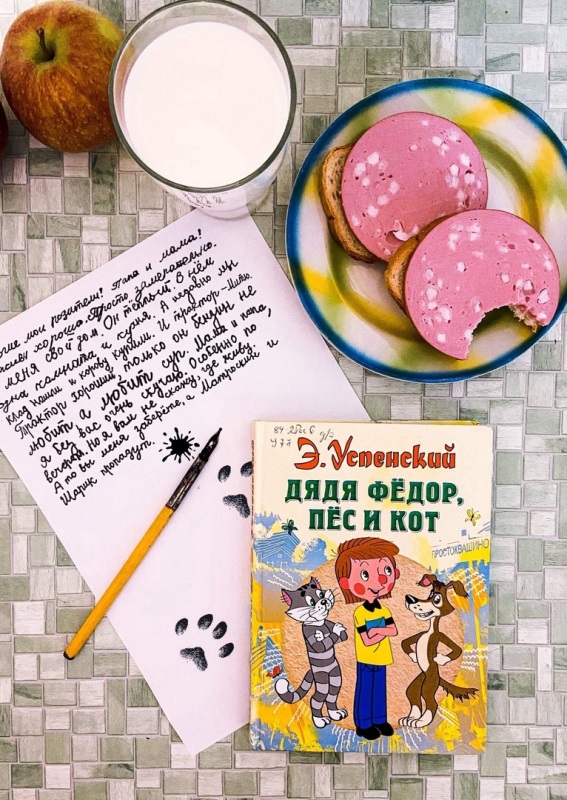 мои родители! Папа и мама!
хорошо. Просто замечательно.
меня свой дом. Он тёплый. В нём
комната и кухня. А недавно мы
клад нашли и корову купили. И трактор-Митю.
Трактор хороший, только он бензин не
любит, а любит суп. Мама и папа,
я без вас очень скучаю. Особенно по
вечерам. Но я вам не скажу, где живу.
А то вы меня заберёте, а Матроскин и
Шарик пропадут.
У 77
Э. Успенский
ДЯДЯ ФЁДОР,
ПЁС И КОТ
ПРОСТОКВАШИНО